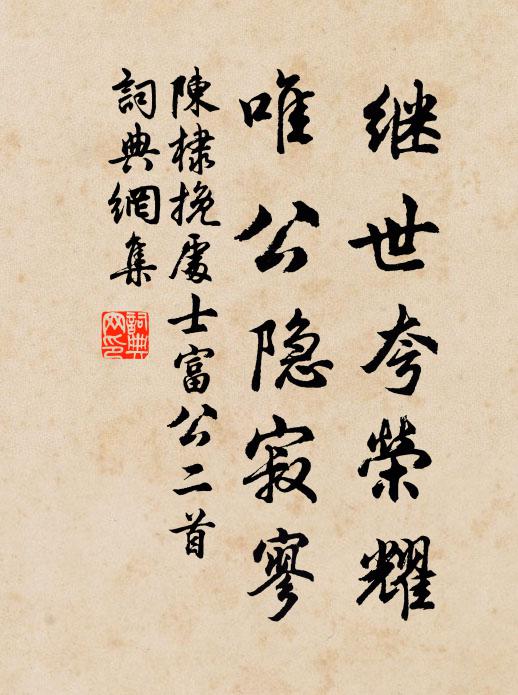 继世夸榮耀
唯公隐寂寥
陳棣挽處士富公二首
詞典網集
詞典網印